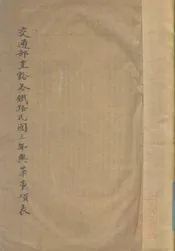 交通部直轄各鐵路民國三年興革事項表